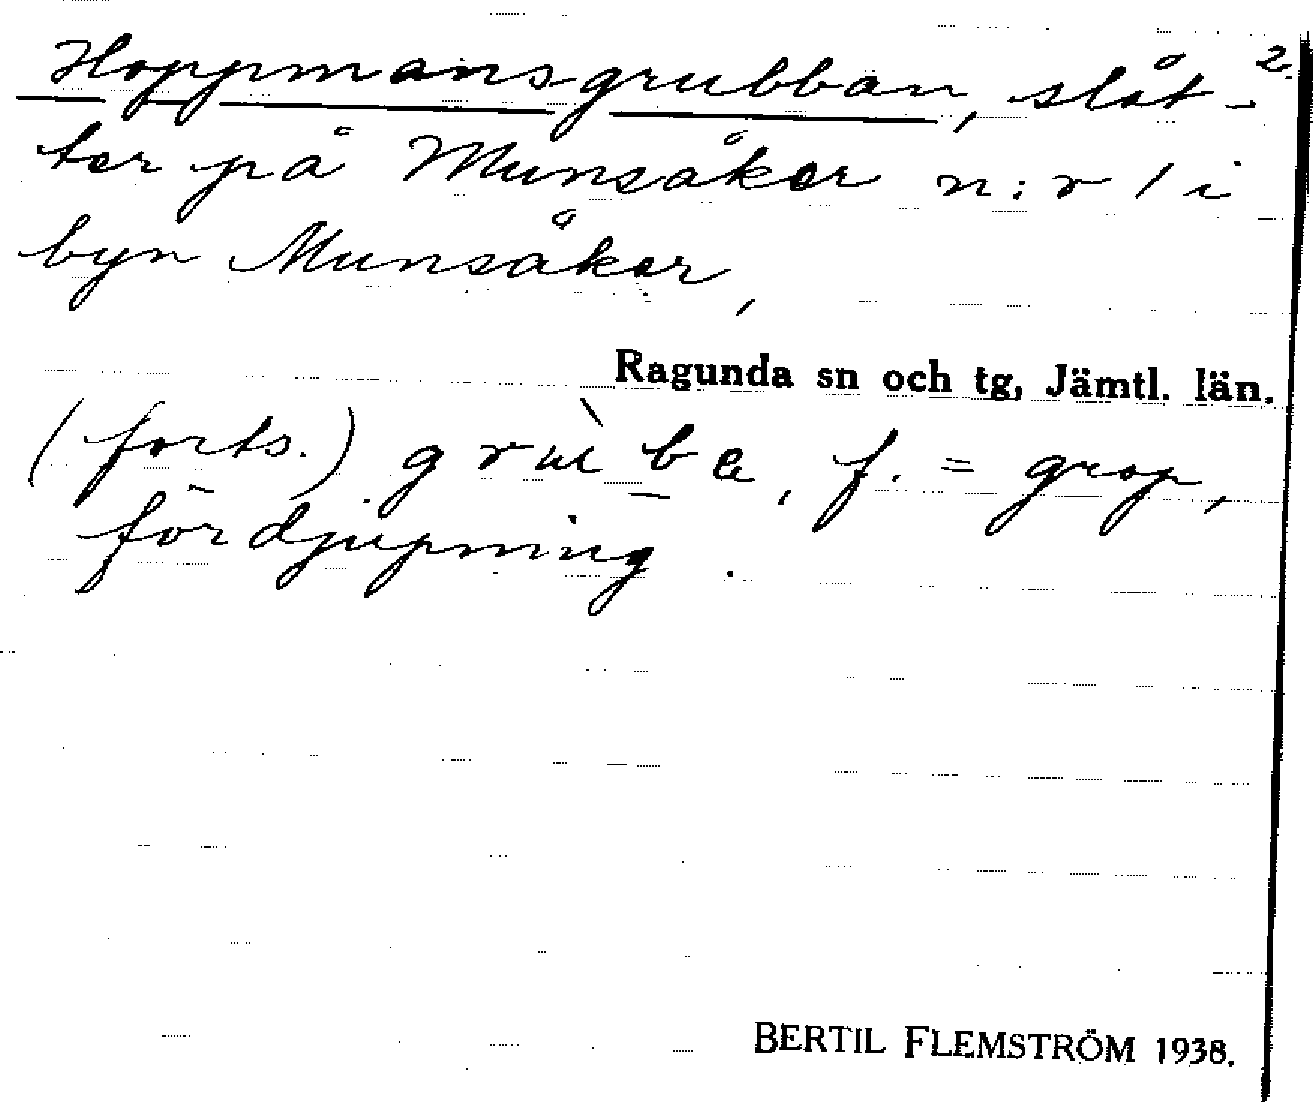 Hoppmansgrubban, slåt- 2.
ter på Munsåker n:r 1 i
byn Munsåker,
Ragunda sn och tg, Jämtl. län.
(forts.) grùba, f. = grop,
fördjupning.
BERTIL FLEMSTRÖM 1938.